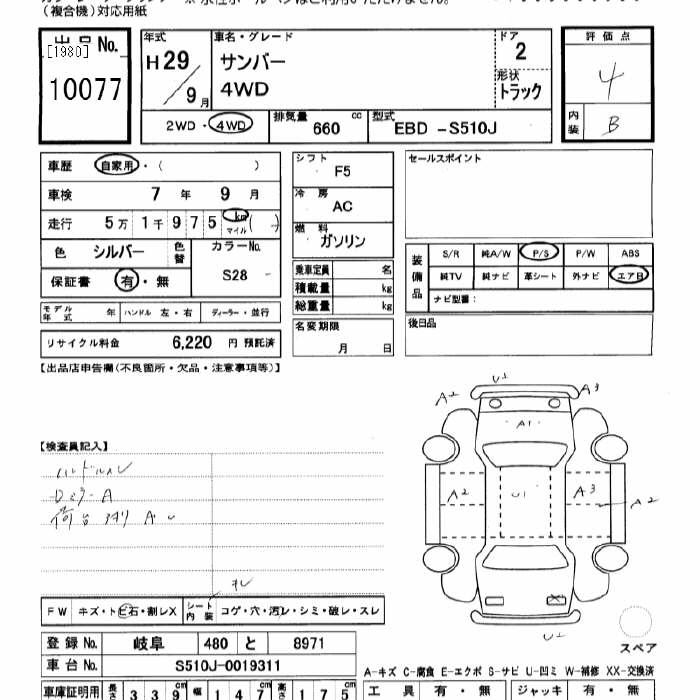 (複合機)対応用紙
出品No.
[1980]
10077
年式
H29
9月
車名・グレード
サンバー
4WD
ドア
2
形状
トラック
2WD・4WD
排気量 cc
660
型式
EBD -S510J
評価点
4
内装 B
車歴 自家用・( )
車検 7年 9月
走行 5万 1千 9 7 5 km マイル ( )
色 シルバー 色替
カラーNo.
S28
保証書 有・無
モデル年式 年 ハンドル 左・右 ディーラー・並行
リサイクル料金 6,220 円 預託済
シフト
F5
冷房
AC
燃料
ガソリン
乗車定員 名
積載量 kg
総重量 kg
名変期限
月 日
セールスポイント
装備品
S/R 純A/W P/S P/W ABS
純TV 純ナビ 革シート 外ナビ エアB
ナビ型番:
後日品
【出品店申告欄(不良箇所・欠品・注意事項等)】
【検査員記入】
ハンドルスレ
Dミラー A
荷台 アオリ A
スレ
FW キズ・トビ石・割レX
シート内装 コゲ・穴・汚レ・シミ・破レ・スレ
A2
U2
A3
A1
A2
U1
A3
A2
U2
スペア
登録No. 岐阜 480 と 8971
車台No. S510J-0019311
車庫証明用 長さ 339cm 幅 147cm 高さ 175cm
A-キズ C-腐食 E-エクボ S-サビ U-凹ミ W-補修 XX-交換済
工具 有・無 ジャッキ 有・無